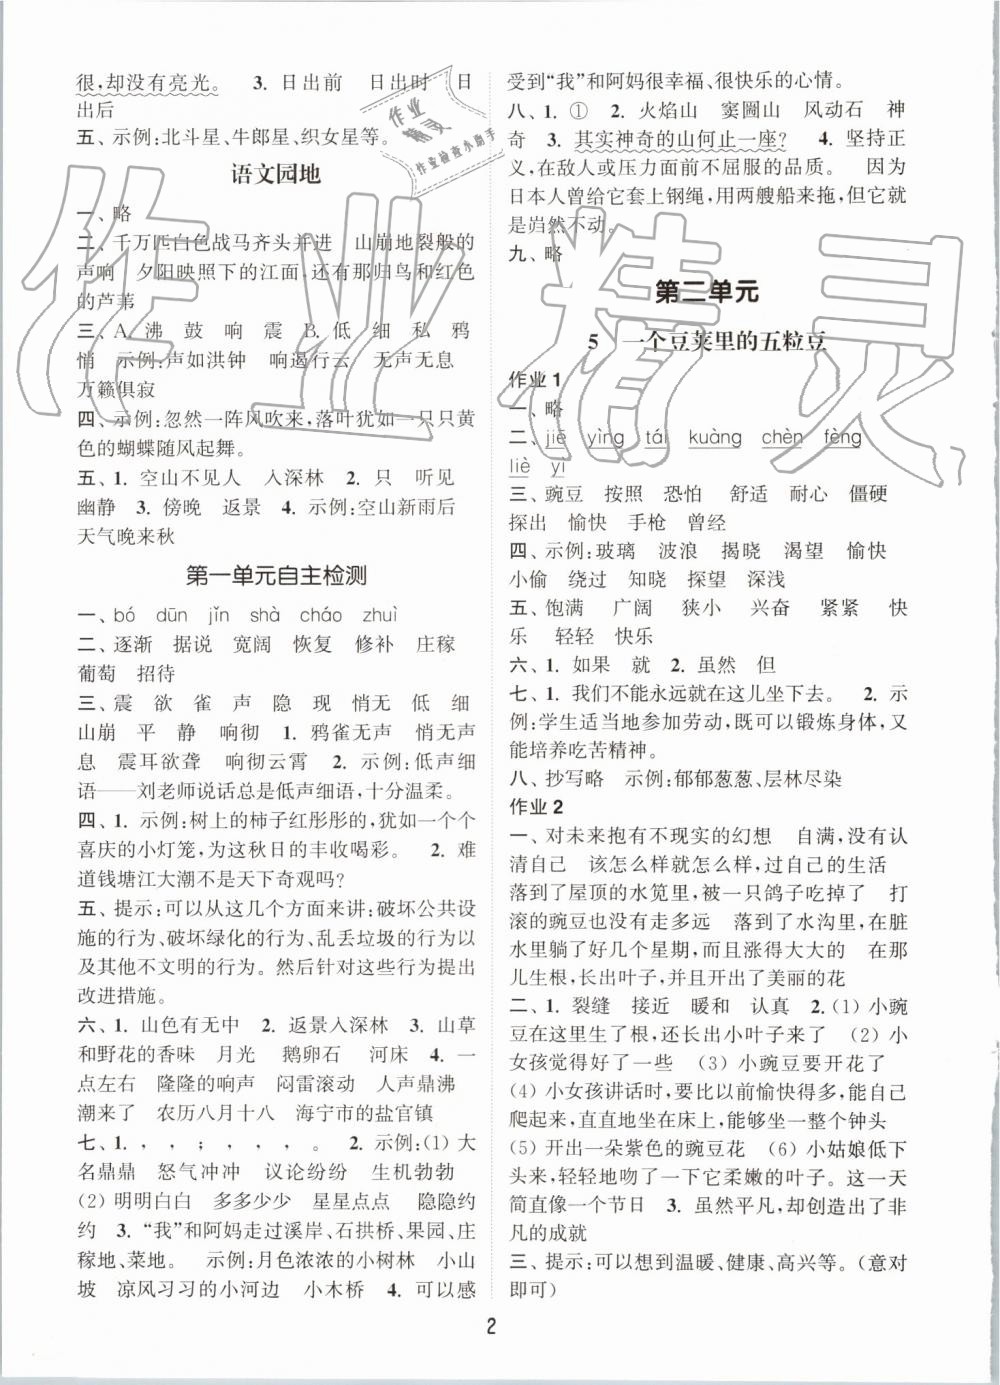 很,却没有亮光。 3. 日出前 日出时 日
出后
五、示例:北斗星、牛郎星、织女星等。
语文园地
一、略
二、千万匹白色战马齐头并进 山崩地裂般的
声响 夕阳映照下的江面,还有那归鸟和红色
的芦苇
三、A. 沸 鼓 响 震 B. 低 细 私 鸦
悄 示例:声如洪钟 响遏行云 无声无息
万籁俱寂
四、示例:忽然一阵风吹来,落叶犹如一只只黄
色的蝴蝶随风起舞。
五、1. 空山不见人 入深林 2. 只 听见
幽静 3. 傍晚 返景 4. 示例:空山新雨后
天气晚来秋
第一单元自主检测
一、bó dūn jǐn shà cháo zhuì
二、逐渐 据说 宽阔 恢复 修补 庄稼
葡萄 招待
三、震 欲 雀 声 隐 现 悄无 低 细
山崩 平 静 响彻 1. 鸦雀无声 悄无声
息 震耳欲聋 响彻云霄 2. 示例:低声细
语——刘老师说话总是低声细语,十分温柔。
四、1. 示例:树上的柿子红彤彤的,犹如一个个
喜庆的小灯笼,为这秋日的丰收喝彩。 2. 难
道钱塘江大潮不是天下奇观吗?
五、提示:可以从这几个方面来讲:破坏公共设
施的行为、破坏绿化的行为、乱丢垃圾的行为以
及其他不文明的行为。然后针对这些行为提出
改进措施。
六、1. 山色有无中 2. 返景入深林 3. 山草
和野花的香味 月光 鹅卵石 河床 4. 一
点左右 隆隆的响声 闷雷滚动 人声鼎沸
潮来了 农历八月十八 海宁市的盐官镇
七、1. , , ; , , 。 2. 示例:(1) 大
名鼎鼎 怒气冲冲 议论纷纷 生机勃勃
(2) 明明白白 多多少少 星星点点 隐隐约
约 3. “我”和阿妈走过溪岸、石拱桥、果园、庄
稼地、菜地。 示例:月色浓浓的小树林 小山
坡 凉风习习的小河边 小木桥 4. 可以感
受到“我”和阿妈很幸福、很快乐的心情。
八、1. ① 2. 火焰山 窦圌山 风动石 神
奇 3. 其实神奇的山何止一座? 4. 坚持正
义,在敌人或压力面前不屈服的品质。 因为
日本人曾给它套上钢绳,用两艘船来拖,但它就
是岿然不动。
九、略
第二单元
5 一个豆荚里的五粒豆
作业 1
一、略
二、jiē yìng tái kuàng chèn fèng
liè yì
三、豌豆 按照 恐怕 舒适 耐心 僵硬
探出 愉快 手枪 曾经
四、示例:玻璃 波浪 揭晓 渴望 愉快
小偷 绕过 知晓 探望 深浅
五、饱满 广阔 狭小 兴奋 紧紧 快
乐 轻轻 快乐
六、1. 如果 就 2. 虽然 但
七、1. 我们不能永远就在这儿坐下去。 2. 示
例:学生适当地参加劳动,既可以锻炼身体,又
能培养吃苦精神。
八、抄写略 示例:郁郁葱葱、层林尽染
作业 2
一、对未来抱有不现实的幻想 自满,没有认
清自己 该怎么样就怎么样,过自己的生活
落到了屋顶的水笕里,被一只鸽子吃掉了 打
滚的豌豆也没有走多远 落到了水沟里,在脏
水里躺了好几个星期,而且涨得大大的 在那
儿生根,长出叶子,并且开出了美丽的花
二、1. 裂缝 接近 暖和 认真 2. (1) 小豌
豆在这里生了根,还长出小叶子来了 (2) 小
女孩觉得好了一些 (3) 小豌豆要开花了
(4) 小女孩讲话时,要比以前愉快得多,能自己
爬起来,直直地坐在床上,能够坐一整个钟头
(5) 开出一朵紫色的豌豆花 (6) 小姑娘低下
头来,轻轻地吻了一下它柔嫩的叶子。这一天
简直像一个节日 3. 虽然平凡,却创造出了非
凡的成就
三、提示:可以想到温暖、健康、高兴等。(意对
即可)
2
作业精灵
作业
精灵
作业检查小助手